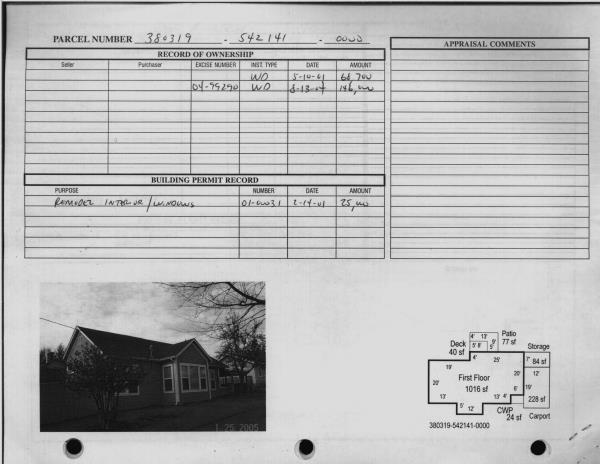 PARCEL NUMBER 380319 - 542141 - 0000
RECORD OF OWNERSHIP
Seller Purchaser EXCISE NUMBER INST. TYPE DATE AMOUNT
WD 5-10-01 68,700
04-99290 WD 8-13-04 146,000
BUILDING PERMIT RECORD
PURPOSE NUMBER DATE AMOUNT
REMODEL INTERIOR/WINDOWS 01-00031 2-14-01 25,000
APPRAISAL COMMENTS
1.25.2005
4' 13' Patio
5' 8' 9' 77 sf
Deck 5'
40 sf
Storage
4' 25' 7' 84 sf
19' 20' 12'
First Floor
20' 1016 sf 19'
6'
13' 13' 4' 228 sf
5' 12' CWP
24 sf Carport
380319-542141-0000